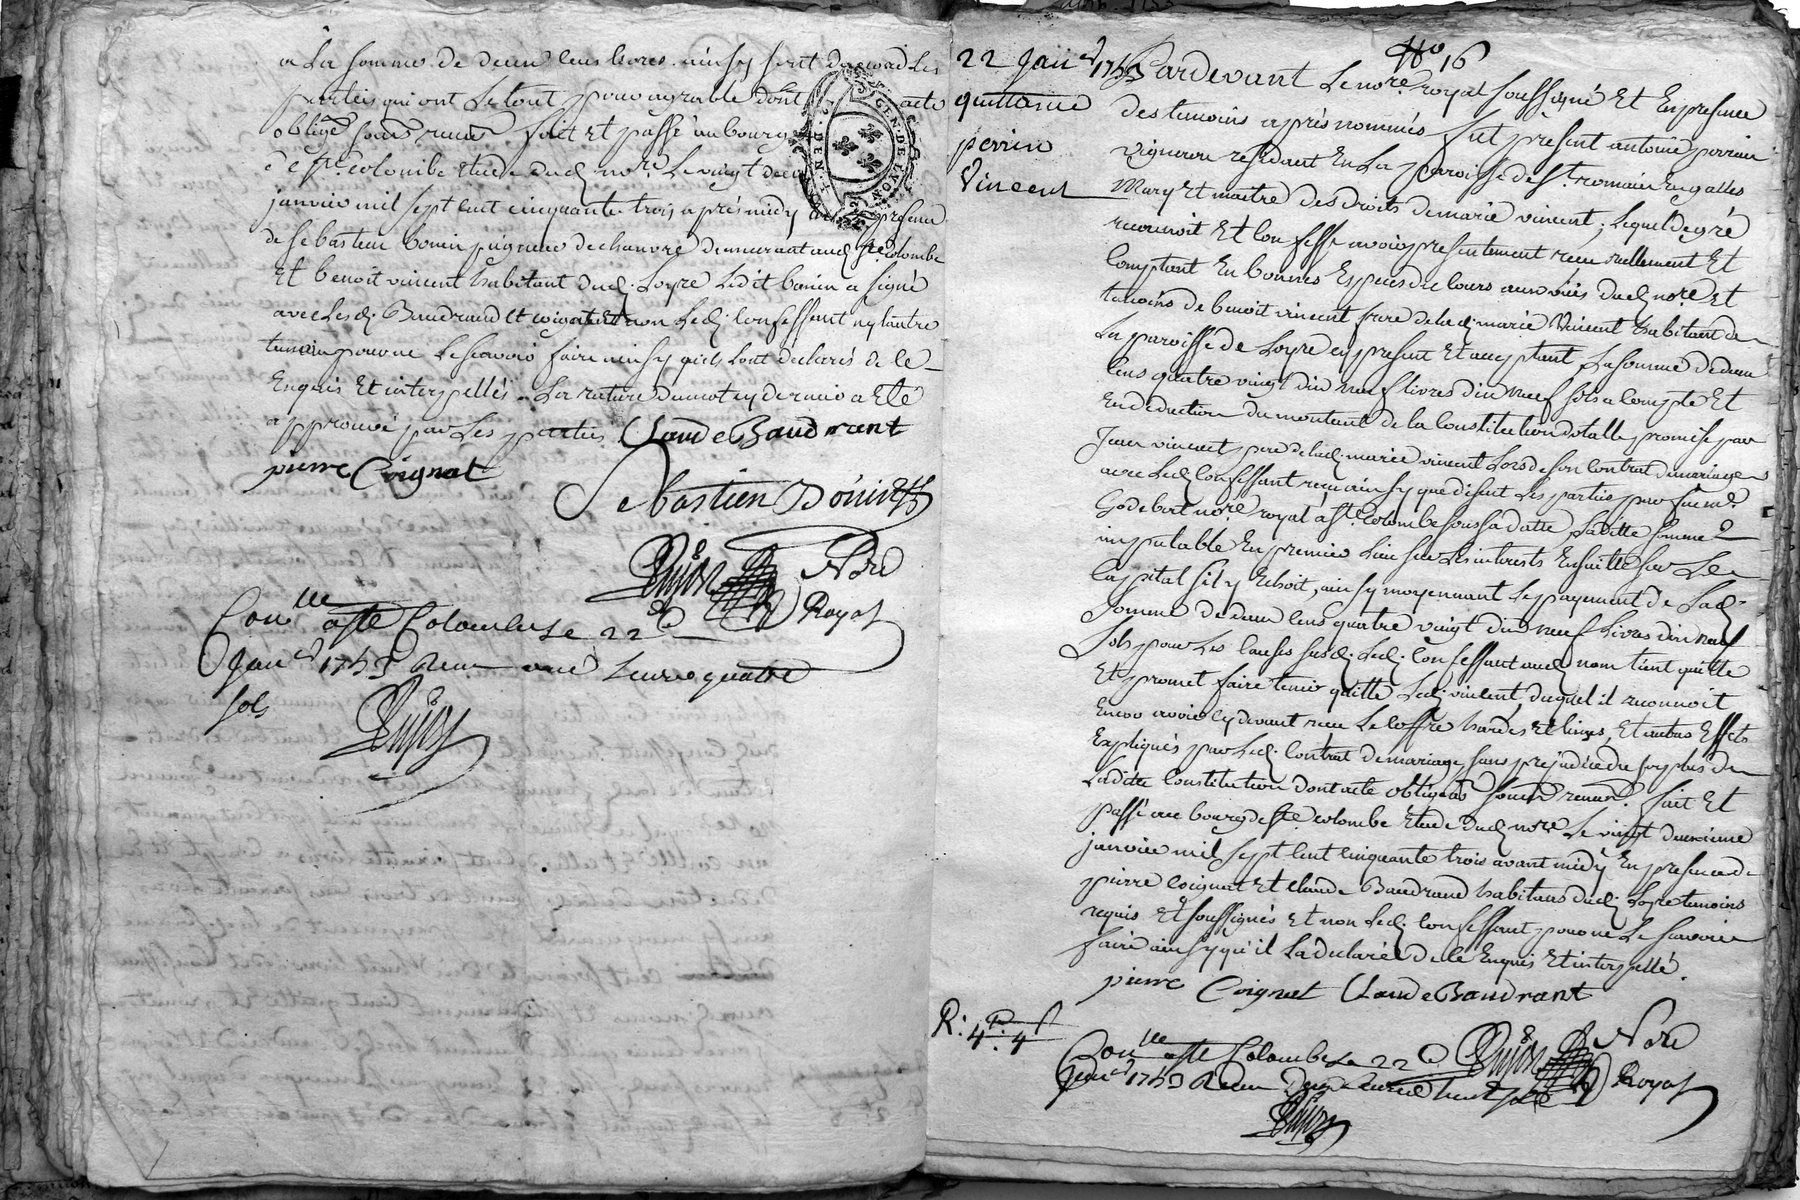 a La somme de deux cens livres. ainsy sont d'accord Les
parties qui ont Le tout pour agreable dont acte
obligé soums renon fait et passé au bourg
de Ste colombe etude dud nore. Le vingt deux
janvier mil sept cent cinquante trois après midy en presence
de sebastien bonin peigneur de chanvre demeurant aud Ste colombe
Et benoit vincent habitant dudt. Loyre Ledit bonin a signé
avec Lesdt. Baudrand et coignat et non Ledt. Confessant ny l'autre
temoin pour ne Le scavoir faire ainsy qu'ils l'ont declarés de ce
Enquis Et interpellés. La rature du mot cy dernier a Eté
approuvé par Les parties. Claude Baudrant
pierre Coignat
Sebastien Bonin
Nore
Royal
Conlle a Ste Colombe Le 22e
Janer 1753 Receu une Livre quatre
sols
GEN. DE LYON
No 16
22 Janer 1753
quittance
perrin
Vincent
Pardevant Le nore royal soussigné Et En presence
des temoins après nommés fut present antoine perrin
vigneron residant En La paroisse de St. romain En galles
Mary Et maitre des droits de marie vincent, Lequel de gré
reconnoit Et Confesse avoir presentement receu reellement Et
comptant En bonnes Especes de cours aux vües dudt nore Et
temoins de benoit vincent frere de ladt marie Vincent habitant de
La paroisse de Loyre cy present Et acceptant La somme de deux
cens quatre vingt dix neuf livres dix neuf sols a compte Et
En deduction du montant de la Constitution dotalle promise par
Jean vincent pere de ladt. marie vincent Lors de son Contrat de mariage
avec Ledt Confessant receu ainsy que disent Les parties par feu me.
Godebert nore royal a Ste Colombe sous sa datte, Laditte somme
imputable En premier Lieu sur Les interests Ensuitte sur Le
Capital sil y Echoit, ainsy moyennant Le payement de Ladt.
somme de deux cens quatre vingt dix neuf Livres dix neuf
sols pour Les causes susdt. Ledt. Confessant audt nom tient quitte
Et promet faire tenir quitte Ledt vincent, duquel il reconnoit
Encor avoir cy devant receu Le coffre hardes Et linges, Et autres Effets
Expliqués par Ledt. Contrat de mariage sans prejudice du surplus de
Laditte Constitution dont acte obligeas soums renon. fait Et
passé au bourg de Ste colombe Etude dudt nore Le vingt deuxieme
janvier mil sept cent cinquante trois avant midy En presence de
pierre coignat Et claude Baudrand habitans dudt Loyre temoins
requis Et soussignés Et non Ledt. Confessant pour ne Le scavoir
faire ainsy qu'il L'a declaré de ce Enquis Et interpellé.
pierre Coignat Claude Baudrant
R: 4 4
Nore
Royal
Conlle a Ste Colombe Le 22e
Janer 1753 Receu deux Livres huit sols